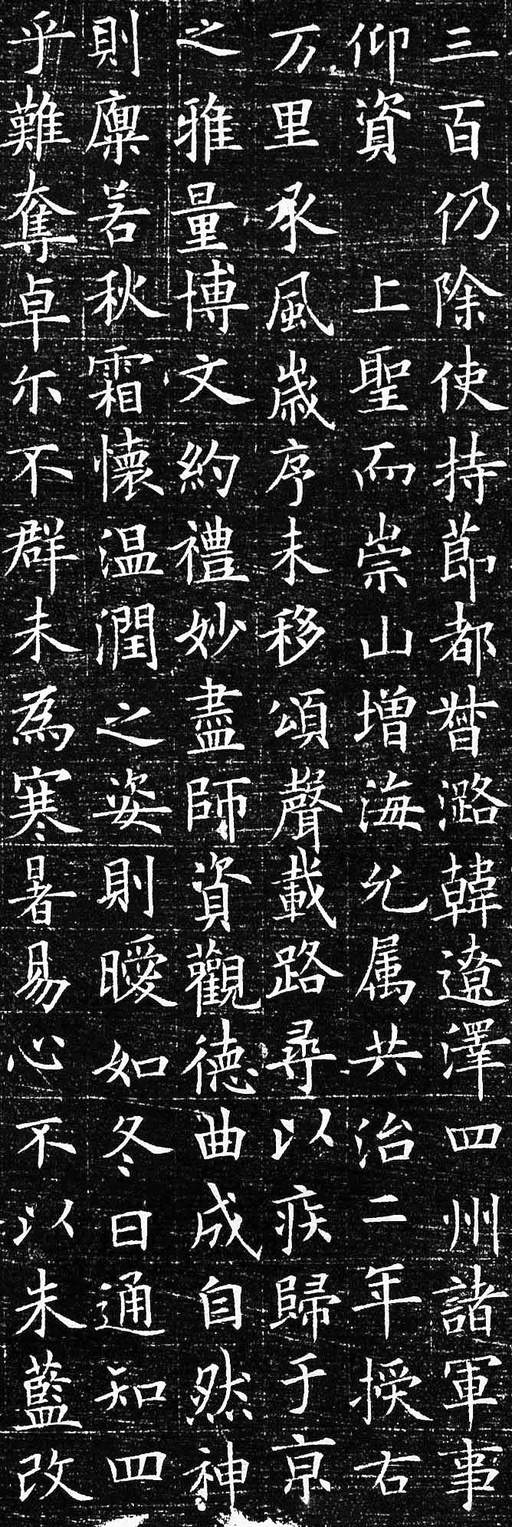 三百仍除使持莭都督潞韓遼澤四州諸軍事
仰資上聖而崇山增海允属共治二年授右
万里承風歲序未移頌聲載路尋以疾歸于京
之雅量博文約禮妙盡師資觀德曲成自然神
則廩若秋霜懷温潤之姿則曖如冬日通知四
乎難奪卓尓不群未為寒暑易心不以朱藍改